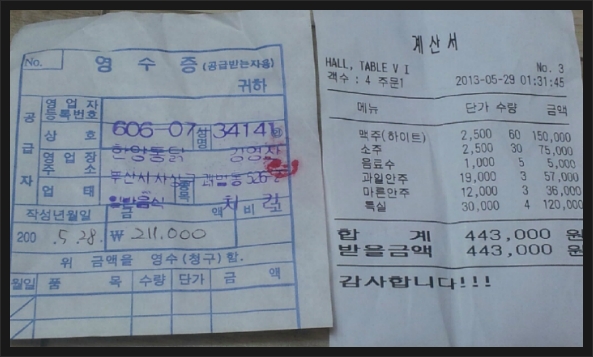 No.
영 수 증 (공급받는자용)
귀하
공급자
영업자등록번호 606-07 34141
상 호 한양통닭 성명
영업장주소 부산시 사상구
업 태 일반음식 종목
작성년월일 금 액 비 고
200 . 5. 28. ₩ 211,000
위 금액을 영수(청구)함.
월일 품 목 수량 단가 금 액
계산서
HALL, TABLE V I No. 3
객수 : 4 주문1 2013-05-29 01:31:45
메뉴 단가 수량 금액
맥주(하이트) 2,500 60 150,000
소주 2,500 30 75,000
음료수 1,000 5 5,000
과일안주 19,000 3 57,000
마른안주 12,000 3 36,000
특실 30,000 4 120,000
합 계 443,000 원
받을금액 443,000 원
감사합니다!!!